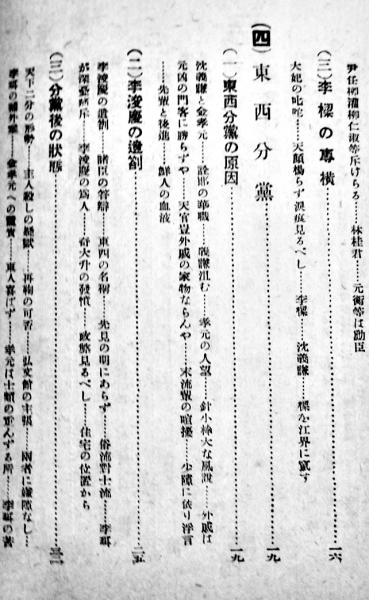 尹任柳灌柳仁淑等斥けらる……林桂君……元衡等は勳臣
(三)李樑の專橫……一六
大妃の叱咤……天顏惕らず淚痕見るべし……李樑……沈義謙……樑を江界に竄す
(四)東西分黨……一九
(一)東西分黨の原因……一九
沈義謙と金孝元……詮郎の華職……義謙沮む……孝元の人望……針小棒大な風說……外戚は
元凶の門客に勝らずや……天官豈外戚の家物ならんや……末流輩の喧擾……少隙に依り浮言
……先輩と後進……鮮人の血液
(二)李浚慶の遺劄……二五
李浚慶の遺劄……諸臣の答辯……東西の名稱……先見の明にあらず……俗流對士流……李珥
が深憂痛斥……李浚慶の爲人……奇大升の發憤……政弊見るべし……住宅の位置から
(三)分黨後の狀態……三二
天下二分の形勢……主人殺しの疑獄……再鞫の可否……弘文館の主張……兩者に嫌隙なし…
李珥の補外策……金孝元への囑賞……東人喜ばず……孝元は士類の重んずる所……李珥の苦